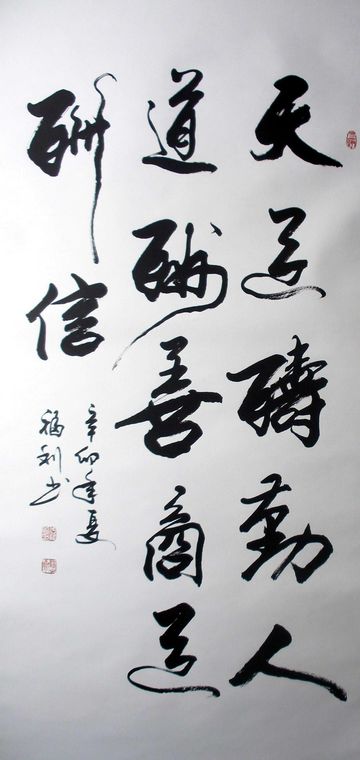 天道酬勤人
道酬善商道
酬信
辛卯年夏
福利书